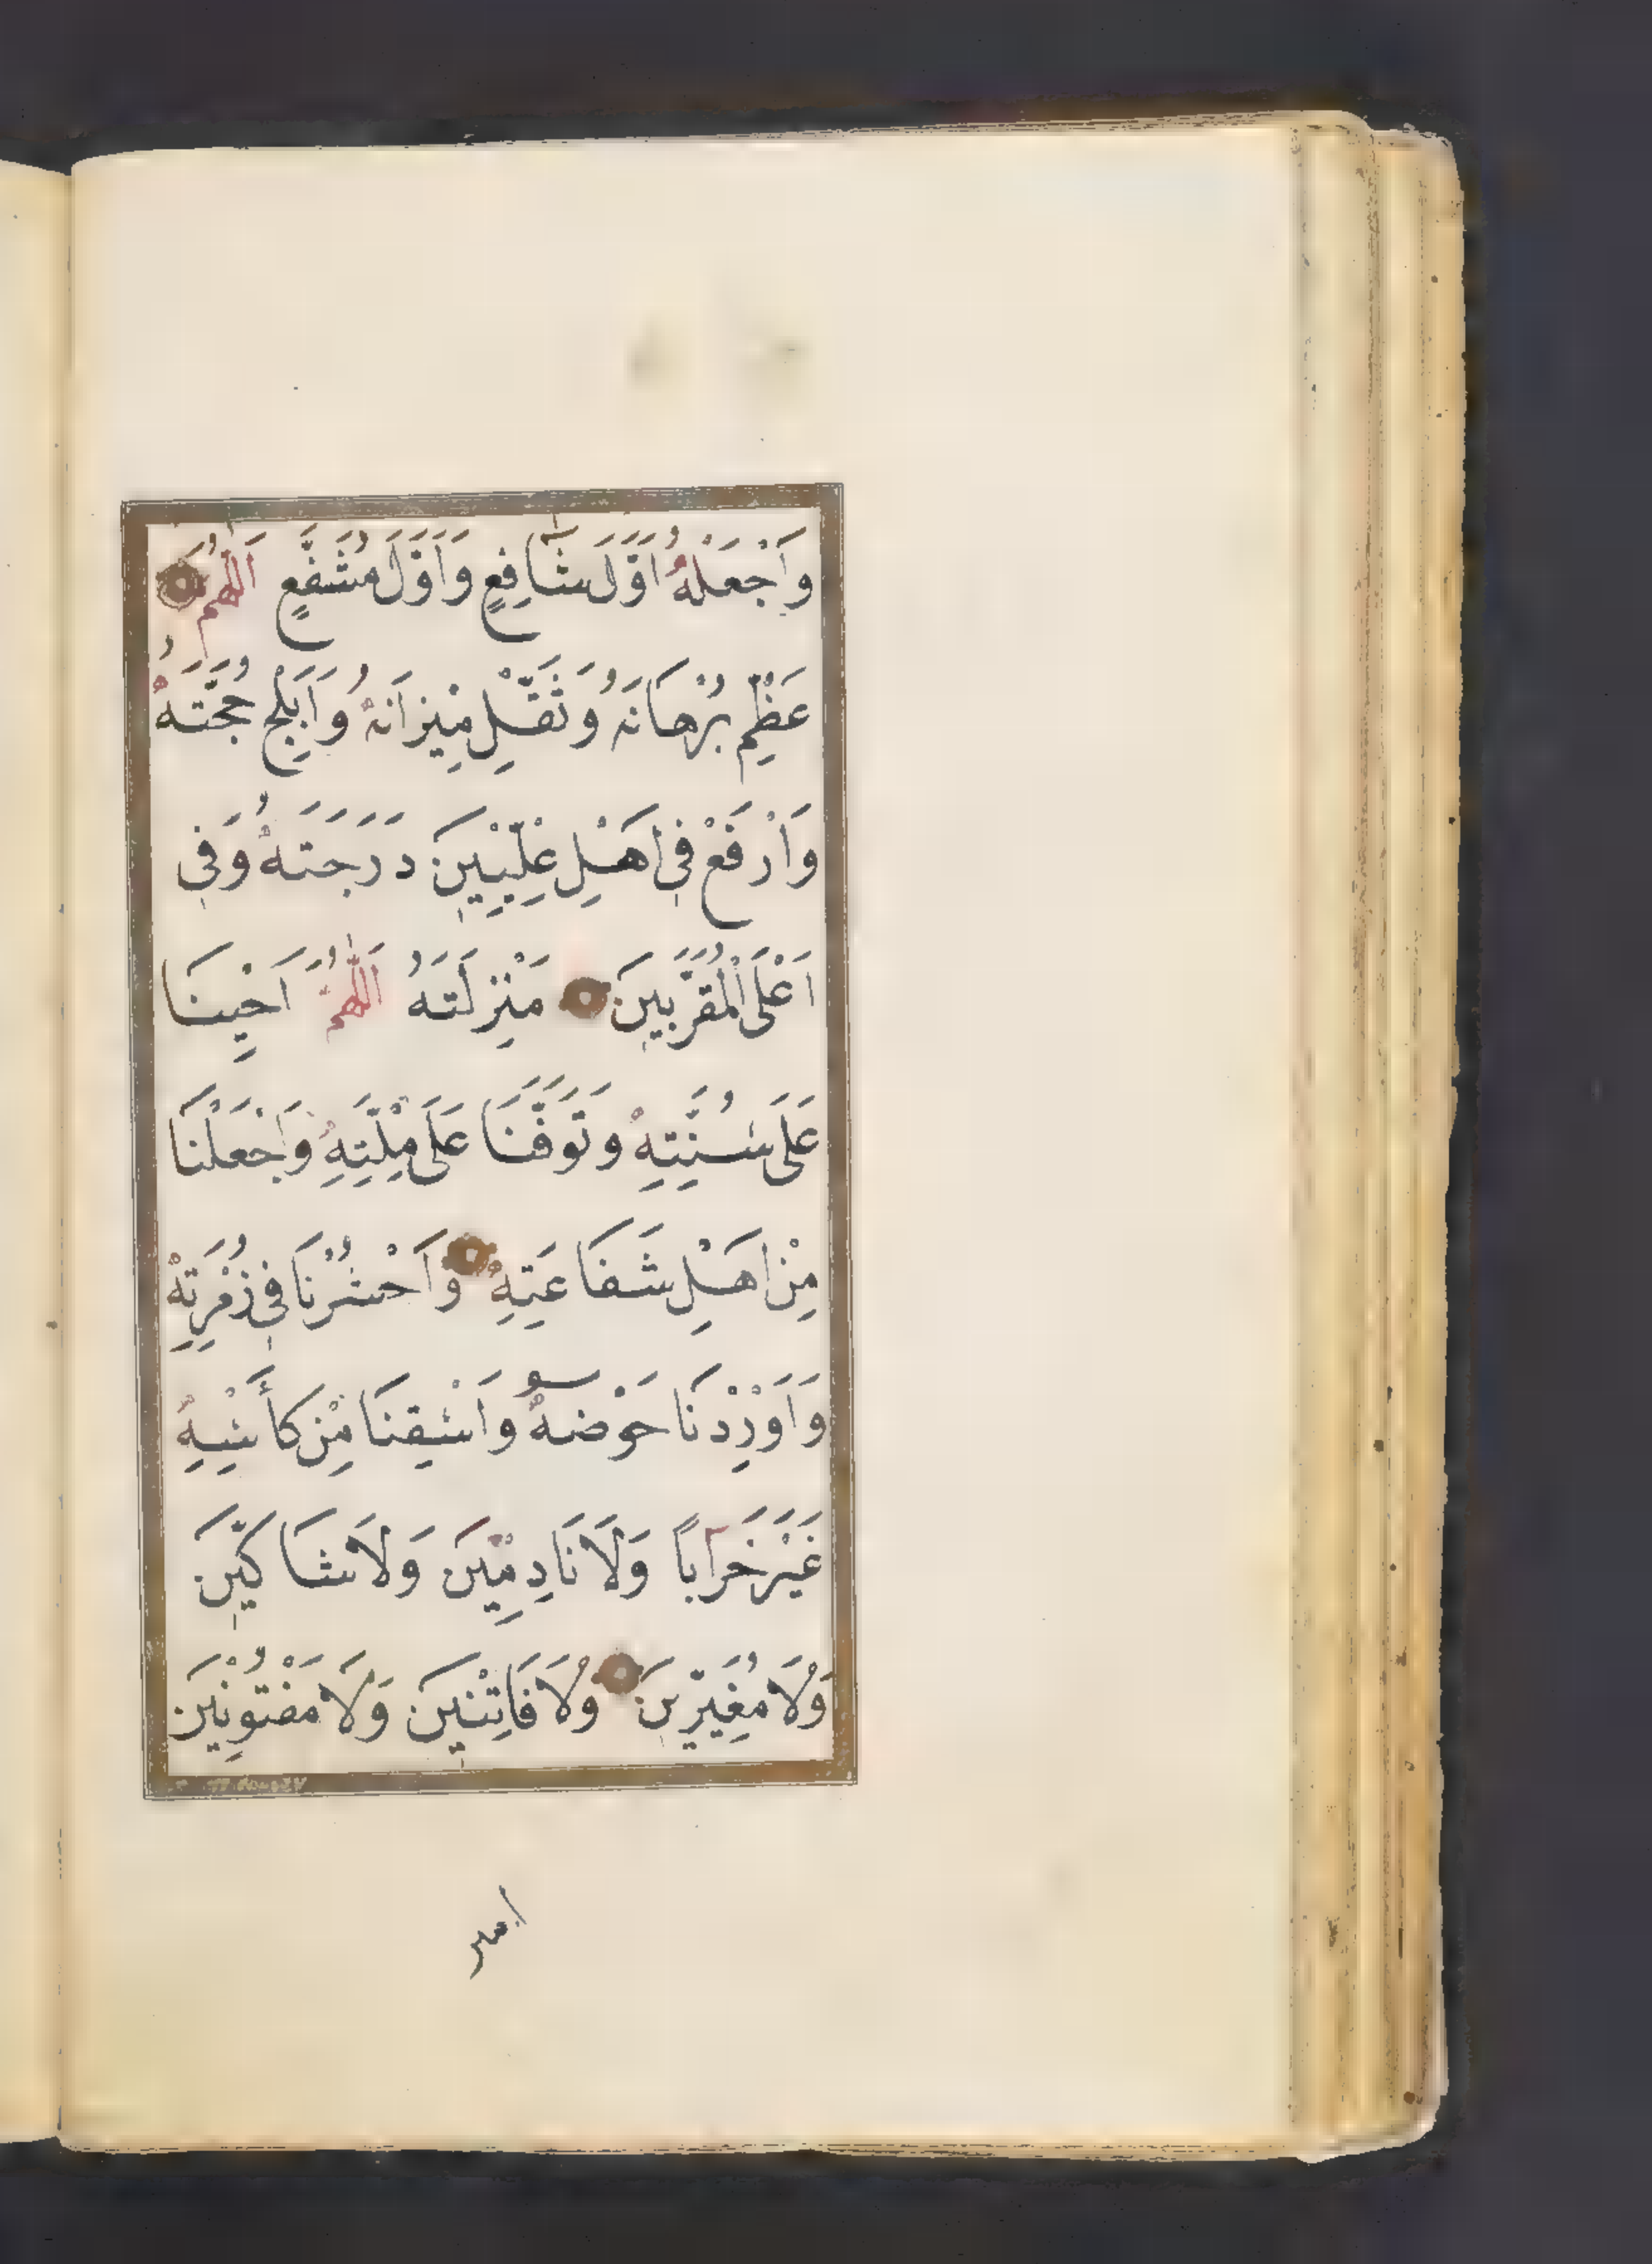 وَاَجْعَلْهُ اَوَّلَ شَافِعٍ وَاَوَّلَ مُشَفَّعٍ اَللّٰهُمَّ
عَظِّمْ بُرْهَانَهُ وَثَقِّلْ مِيْزَانَهُ وَاَبْلِجْ حُجَّتَهُ
وَاَرْفَعْ فِي اَهْلِ عِلِّيِّيْنَ دَرَجَتَهُ وَفِي
اَعْلَى الْمُقَرَّبِيْنَ مَنْزِلَتَهُ اَللّٰهُمَّ اَحْيِنَا
عَلَى سُنَّتِهِ وَتَوَفَّنَا عَلَى مِلَّتِهِ وَاَجْعَلْنَا
مِنْ اَهْلِ شَفَاعَتِهِ وَاَحْشُرْنَا فِي زُمْرَتِهِ
وَاَوْرِدْنَا حَوْضَهُ وَاَسْقِنَا مِنْ كَأْسِهِ
غَيْرَ خَرَابًا وَلَا نَادِمِيْنَ وَلَا شَاكِّيْنَ
وَلَا مُغَيِّرِيْنَ وَلَا فَاتِنِيْنَ وَلَا مَفْتُوْنِيْنَ
امين